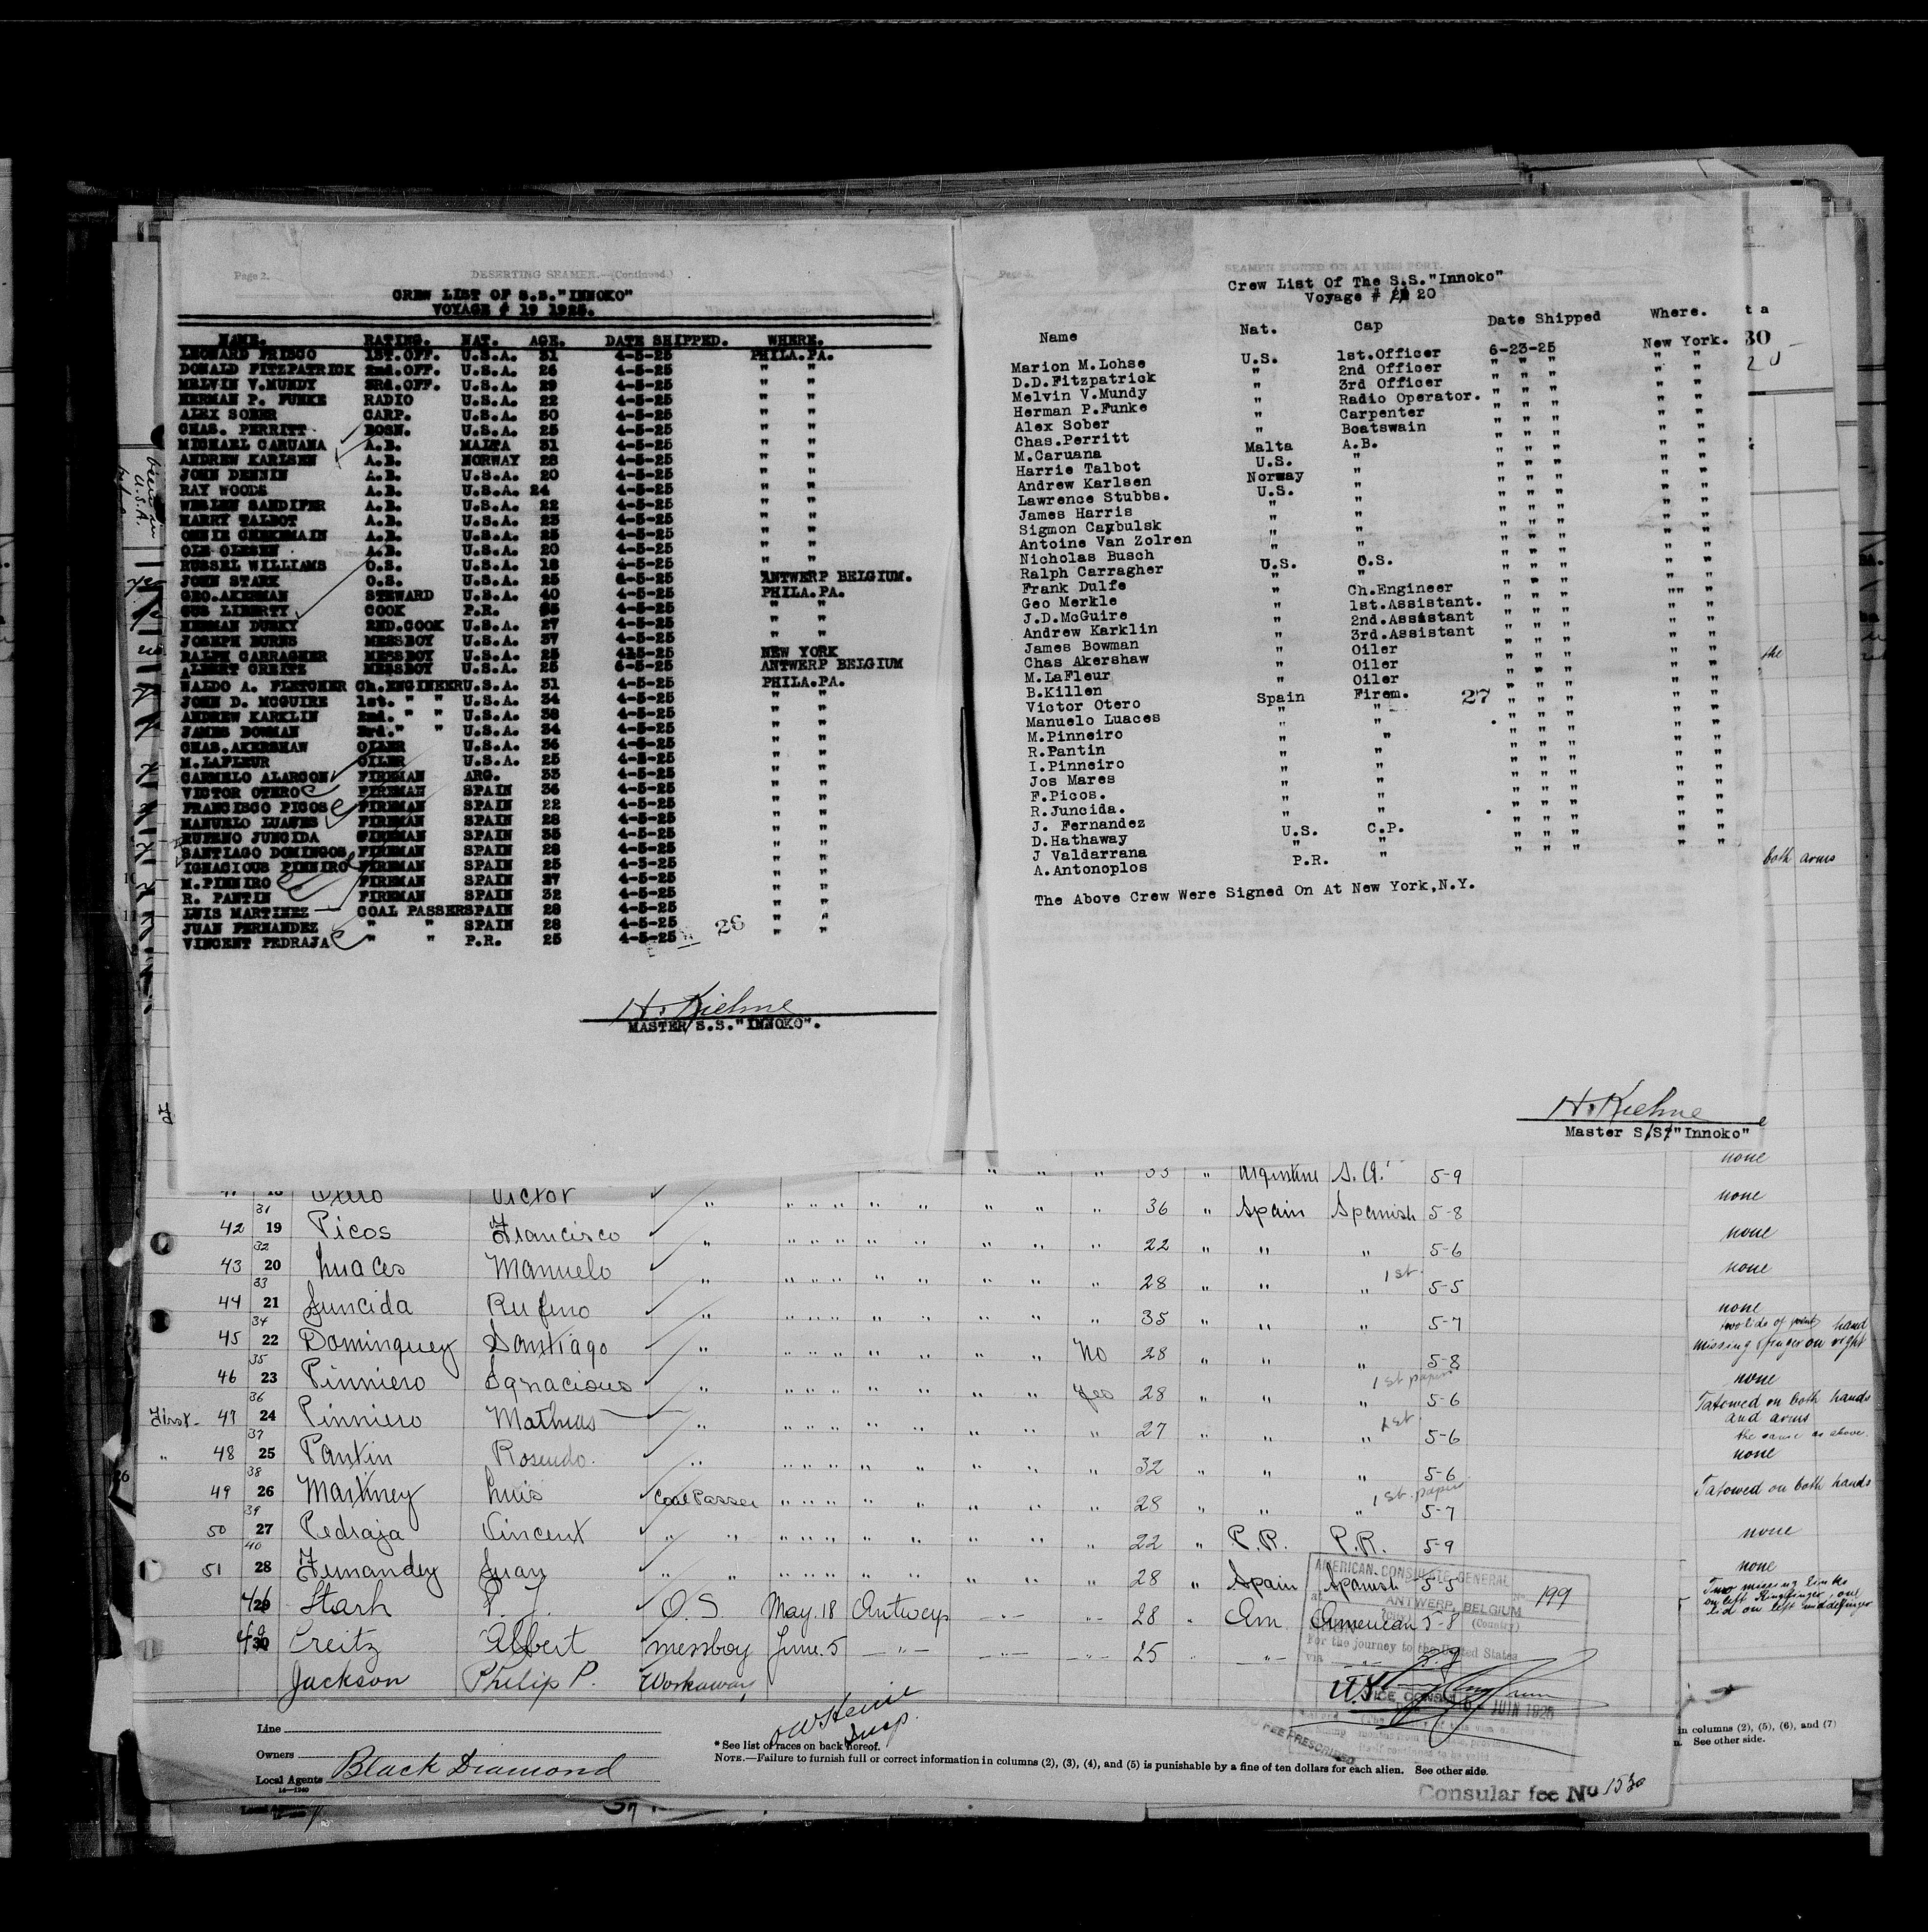 Page 2.
DESERTING SEAMEN.—(Continued.)
CREW LIST OF S.S."INNOKO"
VOYAGE # 19 1925.
NAME. RATING. NAT. AGE. DATE SHIPPED. WHERE.
LEONARD FRISCO 1ST.OFF. U.S.A. 31 4-5-25 PHILA.PA.
DONALD FITZPATRICK 2nd.OFF. U.S.A. 26 4-5-25 " "
MELVIN V.MUNDY 3Rd.OFF. U.S.A. 29 4-5-25 " "
HERMAN P. FUNKE RADIO U.S.A. 22 4-5-25 " "
ALEX SOBER CARP. U.S.A. 30 4-5-25 " "
CHAS. PERRITT BOSN. U.S.A. 25 4-5-25 " "
MICHAEL CARUANA A.B. MALTA 31 4-5-25 " "
ANDREW KARLSEN A.B. NORWAY 28 4-5-25 " "
JOHN DENNIN A.B. U.S.A. 20 4-5-25 " "
RAY WOODS A.B. U.S.A. 24 4-5-25 " "
WESLEY SANDIFER A.B. U.S.A. 22 4-5-25 " "
HARRY TALBOT A.B. U.S.A. 23 4-5-25 " "
A.B. U.S.A. 25 4-5-25 " "
OLE OLESEN A.B. U.S.A. 20 4-5-25 " "
RUSSEL WILLIAMS O.S. U.S.A. 18 4-5-25 " "
JOHN STARK O.S. U.S.A. 25 6-5-25 ANTWERP BELGIUM.
GEO.AKERMAN STEWARD U.S.A. 40 4-5-25 PHILA.PA.
GUS LIBERTY COOK P.R. 4-5-25 " "
HERMAN DUSKY 2ND.COOK U.S.A. 27 4-5-25 " "
JOSEPH BURNS MESSBOY U.S.A. 37 4-5-25 " "
RALPH CARRAGHER MESSBOY U.S.A. 25 NEW YORK
ALBERT CREITZ MESSBOY U.S.A. 25 6-5-25 ANTWERP BELGIUM
WALDO A. FLETCHER Ch.ENGINEER U.S.A. 31 4-5-25 PHILA.PA.
JOHN D. MCGUIRE 1st. " " U.S.A. 34 4-5-25 " "
ANDREW KARKLIN 2nd. " " U.S.A. 38 4-5-25 " "
JAMES BOWMAN 3rd." " U.S.A. 34 4-5-25 " "
CHAS.AKERSHAW OILER U.S.A. 36 4-5-25 " "
M.LAFLEUR OILER U.S.A. 25 4-5-25 " "
CARMELO ALARCON FIREMAN ARG. 33 4-5-25 " "
VICTOR OTERO FIREMAN SPAIN 36 4-5-25 " "
FRANCISCO PICOS FIREMAN SPAIN 22 4-5-25 " "
MANUELO LUACES FIREMAN SPAIN 28 4-5-25 " "
RUFENO JUNCIDA FIREMAN SPAIN 35 4-5-25 " "
SANTIAGO DOMINGOS FIREMAN SPAIN 28 4-5-25 " "
IGNACIOUS PINNIRO FIREMAN SPAIN 25 4-5-25 " "
M.PINNIRO FIREMAN SPAIN 27 4-5-25 " "
R. PANTIN FIREMAN SPAIN 32 4-5-25 " "
LUIS MARTINEZ COAL PASSER SPAIN 28 4-5-25 " "
JUAN FERNANDEZ " " SPAIN 28 4-5-25 " "
VINCENT PEDRAJA " " P.R. 25 4-5-25 26 " "
H. Kiehne
MASTER S.S."INNOKO".
SEAMEN SIGNED ON AT THIS PORT.
Crew List Of The S.S."Innoko"
Voyage # 20
Name Nat. Cap Date Shipped Where.
Marion M.Lohse U.S. 1st.Officer 6-23-25 New York.
D.D.Fitzpatrick " 2nd Officer " " " " "
Melvin V.Mundy " 3rd Officer " " " " "
Herman P.Funke " Radio Operator. " " " " "
Alex Sober " Carpenter " " " " "
Chas.Perritt " Boatswain " " " " "
M.Caruana Malta A.B. " " " " "
Harrie Talbot U.S. " " " " " "
Andrew Karlsen Norway " " " " " "
Lawrence Stubbs. U.S. " " " " " "
James Harris " " " " " " "
Sigmon Caybulsk " " " " " " "
Antoine Van Zolren " " " " " " "
Nicholas Busch " " " " " " "
Ralph Carragher U.S. O.S. " " " " "
Frank Dulfe " " " " " " "
Geo Merkle " Ch.Engineer " " " " "
J.D.McGuire " 1st.Assistant. " " " " "
Andrew Karklin " 2nd.Assistant " " " " "
James Bowman " 3rd.Assistant " " " " "
Chas Akershaw " Oiler " " " " "
M.LaFleur " Oiler " " " " "
B.Killen " Oiler " " " " "
Victor Otero Spain Firem. 27 " " " " "
Manuelo Luaces " " " " " " "
M.Pinneiro " " " " " " "
R.Pantin " " " " " " "
I.Pinneiro " " " " " " "
Jos Mares " " " " " " "
F.Picos. " " " " " " "
R.Juncida. " " " " " " "
J. Fernandez " " " " " " "
D.Hathaway U.S. C.P. " " " " "
J Valdarrana " " " " " " "
A.Antonoplos P.R. " " " " " "
The Above Crew Were Signed On At New York,N.Y.
H. Kiehne
Master S/S/"Innoko"
the
both arms
" " " 33 " Argentine S.A. 5-9 none
Otero Victor " " " " " " " " " 36 " Spain Spanish 5-8 none
42 31 19 Picos Francisco " " " " " " " " " 22 " " " 5-6 none
43 32 20 Luaces Manuelo " " " " " " " " " 28 " " " 1st. 5-5 none
44 33 21 Juncida Rufino " " " " " " " " " 35 " " " 5-7 none
45 34 22 Dominquey Santiago " " " " " " " " No 28 " " " 5-8 missing finger on right hand
46 35 23 Pinniero Ignacious " " " " " " " " Yes 28 " " " 1st papers 5-6 none
First- 47 36 24 Pinniero Mathias " " " " " " " " " 27 " " " 1st. 5-6 Tatowed on both hands and arms
" 48 37 25 Pantin Rosendo. " " " " " " " " " 32 " " " 5-6 the same as above. none
49 38 26 Martiney Luis Coal Passer " " " " " " " " 28 " " " 1st. papers 5-7 Tatowed on both hands
50 39 27 Pedraja Vincent " " " " " " " " " " 22 " P.R. P.R. 5-9 none
51 40 28 Fernandey Juan " " " " " " " " " " 28 " Spain Spanish 5-5 none
29 Stark P. J. O.S. May.18 Antwerp " " 28 " Am American 5-8 Two missing links on left Ringfinger, one lid on left middelfinger
30 Creitz Albert messboy June.5 " " " 25 " "
Jackson Philip P. Workaway
AMERICAN CONSULATE GENERAL
ANTWERP, BELGIUM
No 199
(City) (Country)
For the journey to the United States
via
VICE CONSUL
JUIN 1925
NO FEE PRESCRIBED
Line
Owners
Local Agents Black Diamond
14—1240
Insp.
* See list of races on back hereof.
NOTE.—Failure to furnish full or correct information in columns (2), (3), (4), and (5) is punishable by a fine of ten dollars for each alien. See other side.
in columns (2), (5), (6), and (7)
See other side.
Consular fee No 1530
Local Agents